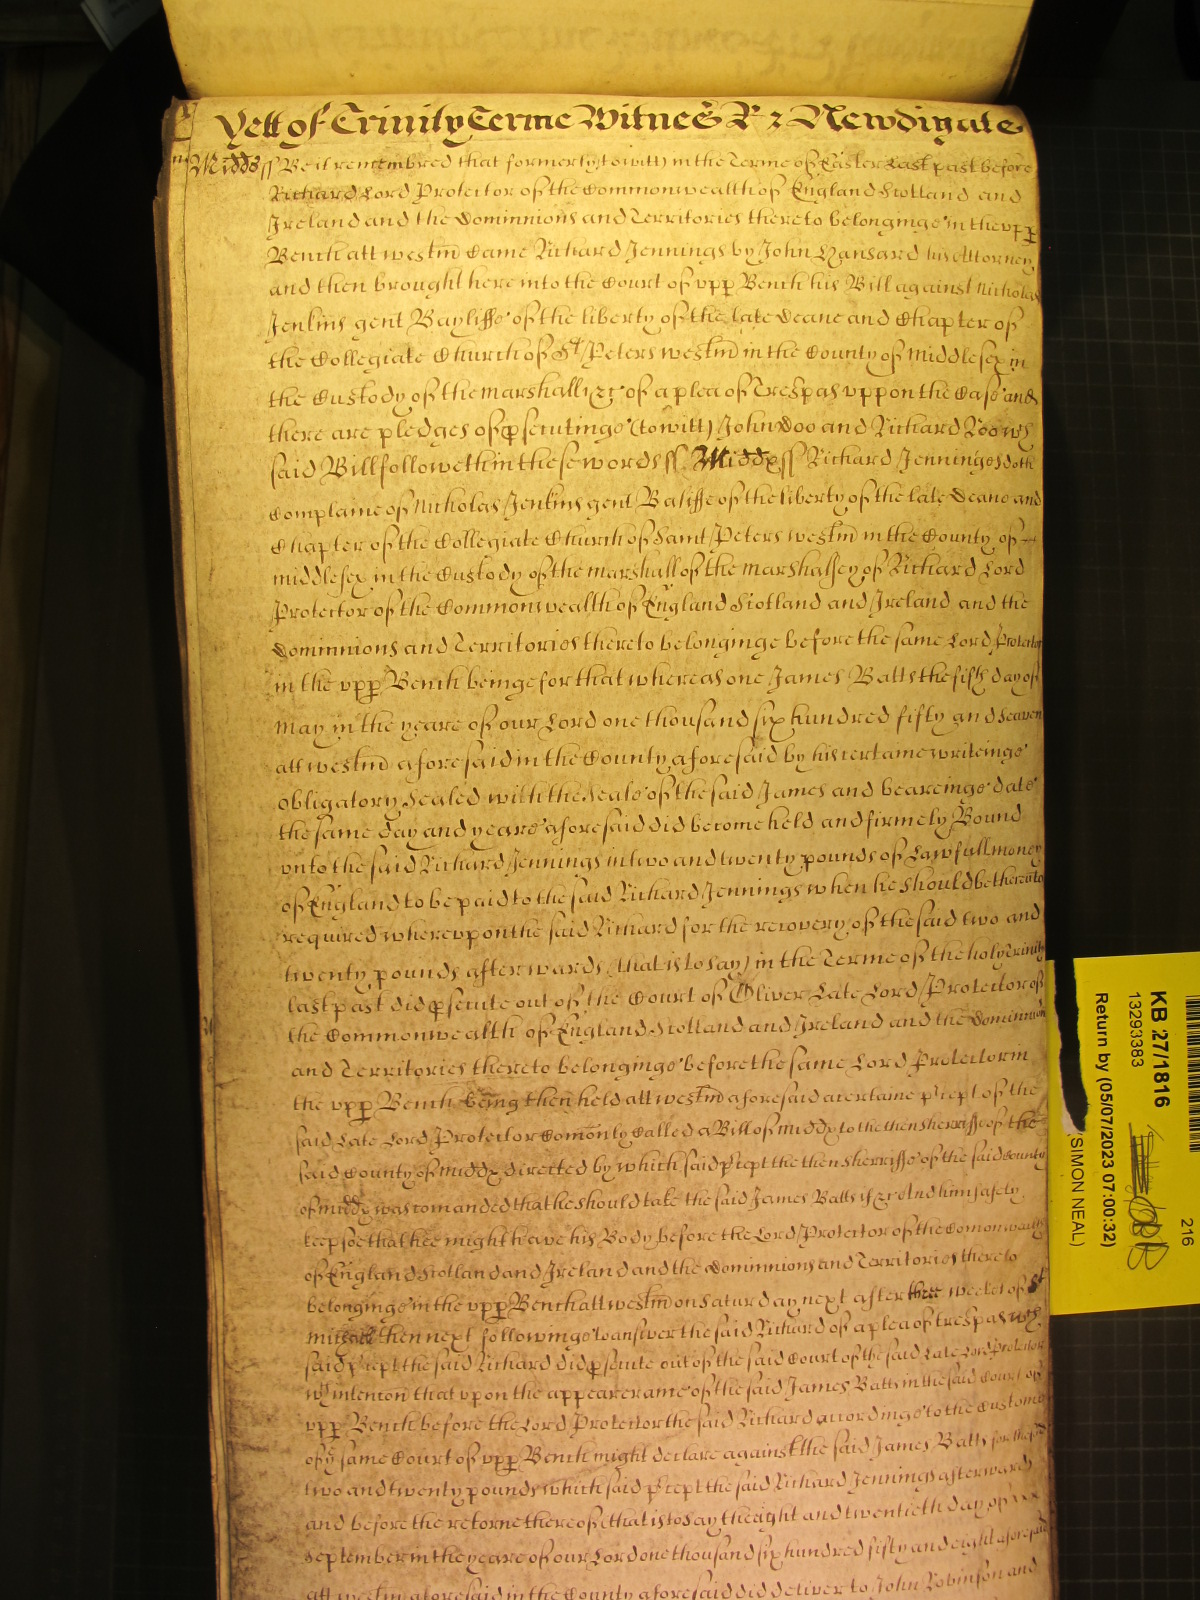 Yett of Trinity Terme Witnes R: Newdigate
Midds ss Be it remembred that formerly (to witt) in the Terme of Easter Last past before
Richard Lord Protector of the Commonwealth of England Scotland and
Ireland and the Dominnions and Territories thereto belonginge in the upp
Bench att westm Came Richard Jennings by John Hansard his Attorney
and then brought here into the Court of upp Bench his Bill against Nicholas
Jenkins gent Bayliffe of the liberty of the late Deane and Chapter of
the Collegiate Church of St Peters westm in the County of Middlesex in
the Custody of the marshall &c of a plea of Trespas uppon the Case and
there are pledges of psecutinge (to witt) John Doo and Richard Roo wch
said Bill followeth in these words ss Middx ss Richard Jenninges doth
Complaine of Nicholas Jenkins gent Baliffe of the liberty of the late Deane and
Chapter of the Collegiate Church of Saint Peters westm in the County of
middlesex in the Custody of the marshall of the marshalsey of Richard Lord
Protector of the Commonwealth of England Scotland and Ireland and the
Dominnions and Territories thereto belonginge before the same Lord Protector
in the upp Bench beinge for that whereas one James Batts the fifth day of
May in the yeare of our Lord one thousand six hundred fifty and seaven
att westm aforesaid in the County aforesaid by his certaine writeinge
obligatory Sealed with the Seale of the said James and beareinge date
the same day and yeare aforesaid did become held and firmely Bound
unto the said Richard Jennings in two and twenty pounds of Lawfull money
of England to be paid to the said Richard Jennings when he should be thereunto
required whereupon the said Richard for the recovery of the said two and
twenty pounds afterwards (that is to say) in the Terme of the holy Trinity
last past did psecute out of the Court of Oliver Late Lord Protector of
the Commonwealth of England Scotland and Ireland and the Dominnions
and Territories thereto belonginge before the same Lord Protector in
the upp Bench being then held att westm aforesaid a certaine pcept of the
said Late Lord Protector Comonly Called a Bill of middx to the then sherriffe of the
said County of middx directed by which said pcept the then sherriffe of the said County
of middx was comanded that he should take the said James Batts if &c And him safely
keep soe that hee might have his Body before the Lord Protector of the Comonwealth
of England Scotland and Ireland and the Dominnions and Territories thereto
belonginge in the upp Bench att westm on Saturday next after three weekes of St
michaell then next followinge to answer the said Richard of a plea of trespas wch
said pcept the said Richard did psecute out of the said Court of the said Late Lord Protector
wth intencon that upon the appearance of the said James Batts in the said Court of
upp Bench before the Lord Protector the said Richard accordinge to the Custome
of ye same Court of upp Bench might declare against the said James Batts for the sd
two and twenty pounds which said pcept the said Richard Jennings afterwards
and before the retorne thereof (that is to say the eight and twentieth day of
September in the yeare of our Lord one thousand six hundred fifty and eight aforesaid
att westm aforesaid in the County aforesaid did deliver to John Robinson and
KB 27/1816
13293383
216
Return by (05/07/2023 07:00:32)
(SIMON NEAL)